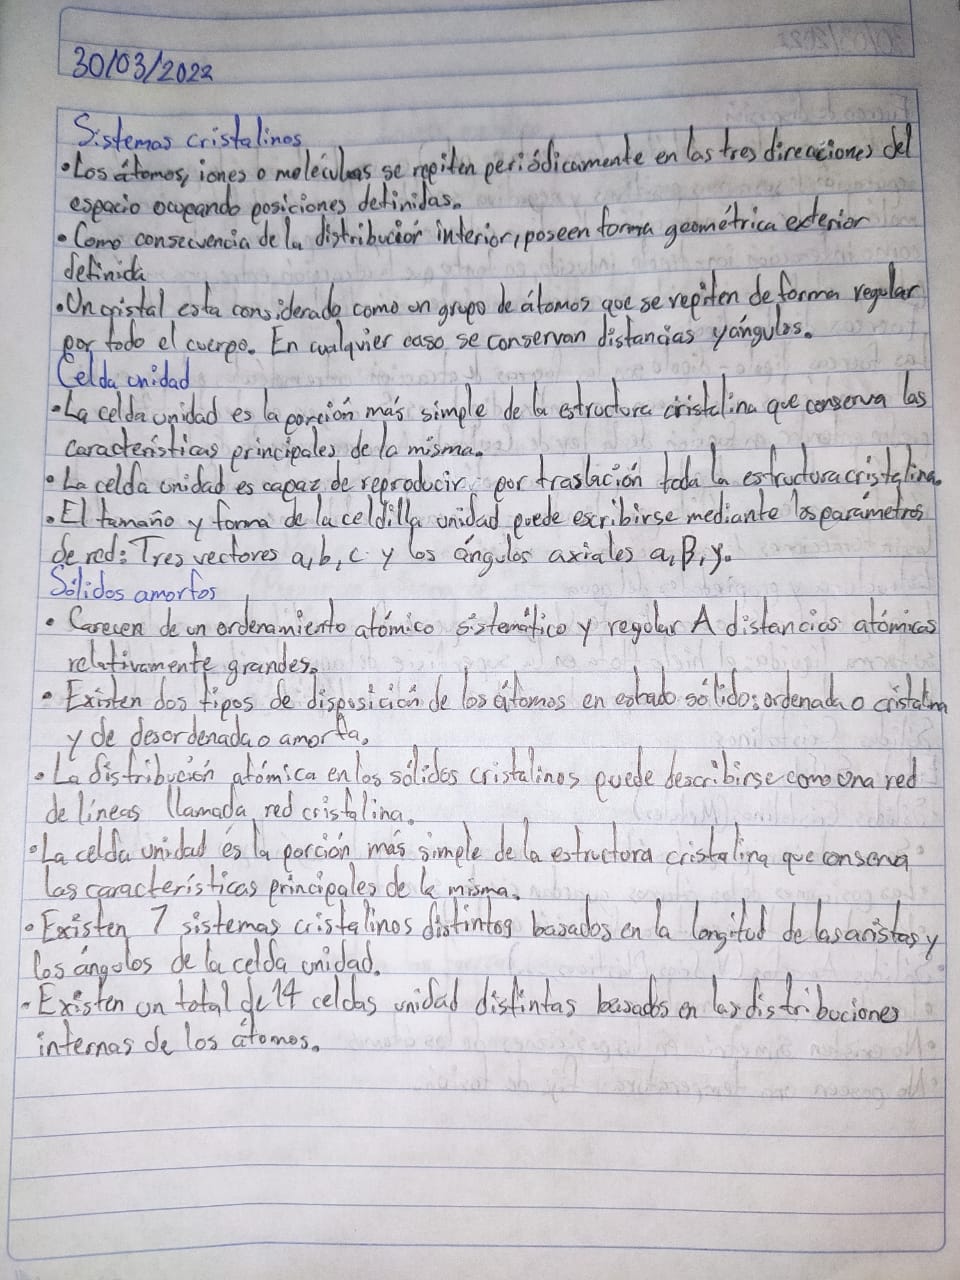 30/03/2022
Sistemas cristalinos
•Los átomos, iones o moléculas se repiten periódicamente en las tres direcciones del
espacio ocupando posiciones definidas.
•Como consecuencia de la distribución interior, poseen forma geométrica exterior
definida
•Un cristal esta considerado como un grupo de átomos que se repiten de forma regular
por todo el cuerpo. En cualquier caso se conservan distancias y ángulos.
Celda unidad
•La celda unidad es la porción más simple de la estructura cristalina que conserva las
características principales de la misma.
•La celda unidad es capaz de reproducir por traslación toda la estructura cristalina.
•El tamaño y forma de la celdilla unidad puede escribirse mediante los parámetros
de red: Tres vectores a, b, c y los ángulos axiales a, β, y.
Sólidos amorfos
• Carecen de un ordenamiento atómico sistemático y regular A distancias atómicas
relativamente grandes.
• Existen dos tipos de disposición de los átomos en estado sólido: ordenada o cristalina
y de desordenada o amorfa.
•La distribución atómica en los sólidos cristalinos puede describirse como una red
de líneas llamada red cristalina.
•La celda unidad es la porción más simple de la estructura cristalina que conserva
las características principales de la misma.
•Existen 7 sistemas cristalinos distintos basados en la longitud de las aristas y
los ángulos de la celda unidad.
•Existen un total de 14 celdas unidad distintas basados en las distribuciones
internas de los átomos.